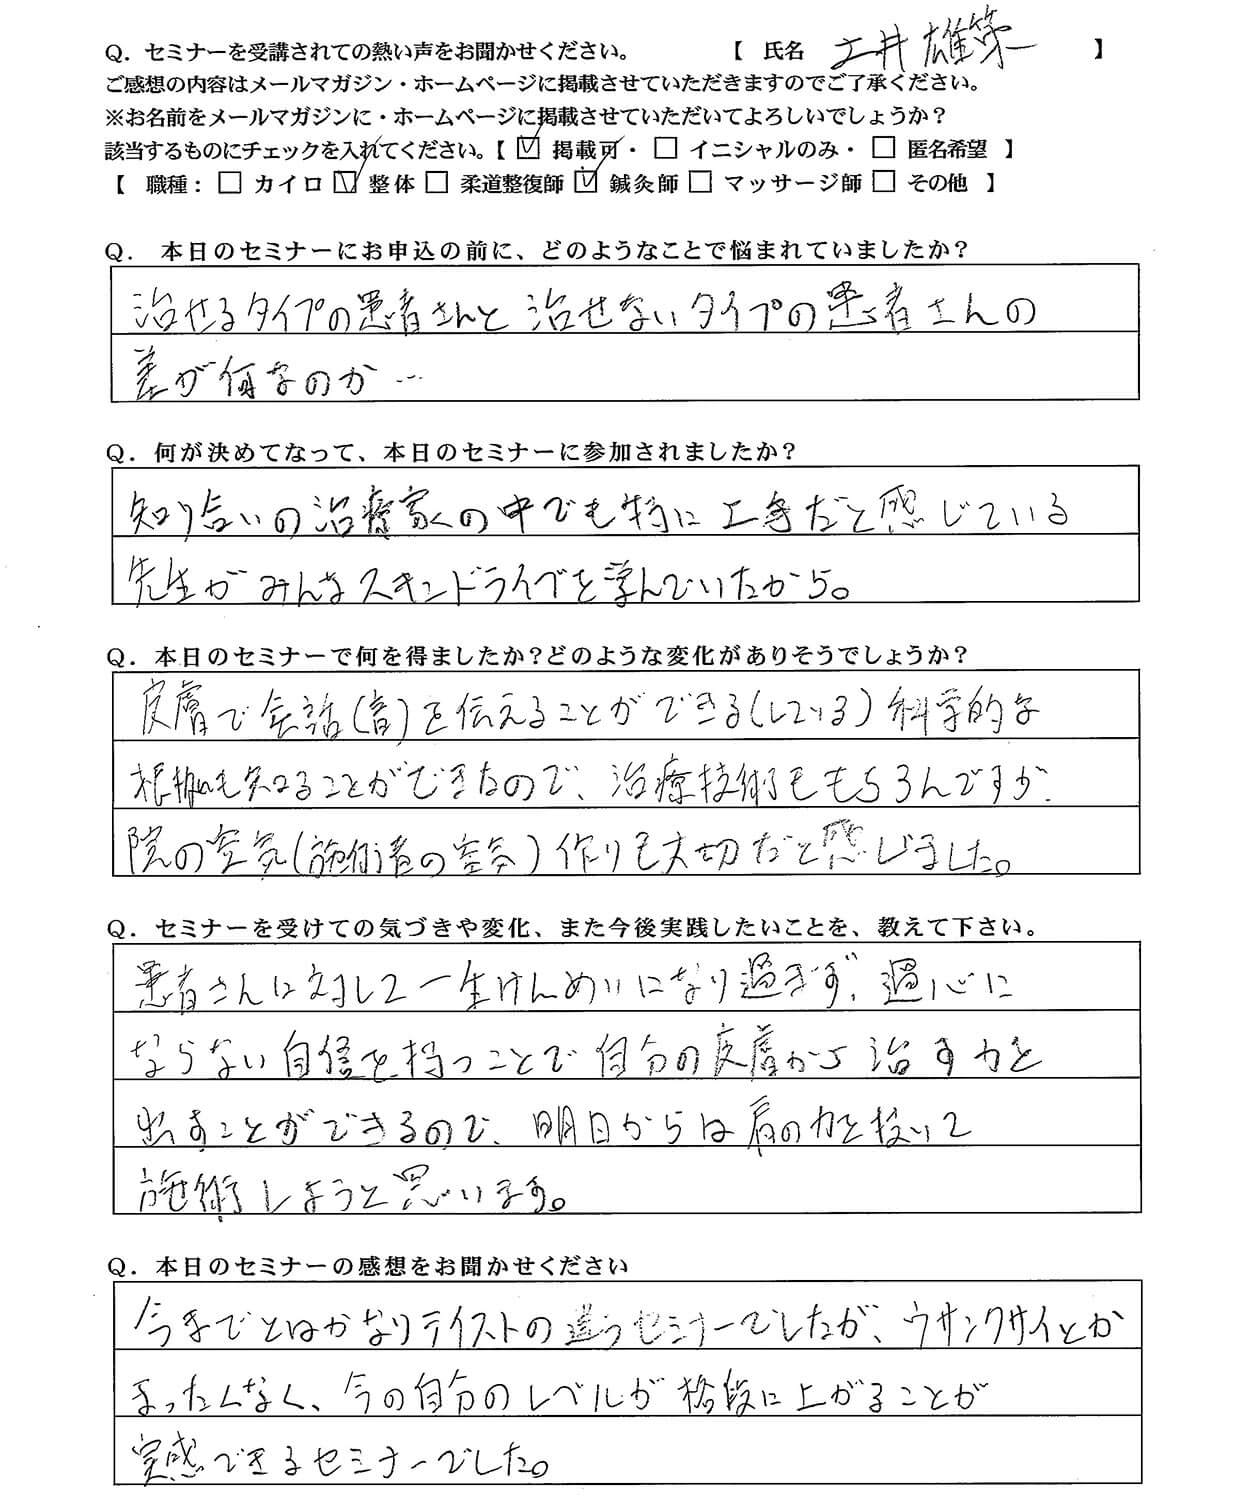 Q．セミナーを受講されての熱い声をお聞かせください。 【 氏名 土井 雄第 】
ご感想の内容はメールマガジン・ホームページに掲載させていただきますのでご了承ください。
※お名前をメールマガジンに・ホームページに掲載させていただいてよろしいでしょうか？
該当するものにチェックを入れてください。【 ☑ 掲載可・ □ イニシャルのみ・ □ 匿名希望 】
【 職種：□ カイロ ☑ 整体 □ 柔道整復師 ☑ 鍼灸師 □ マッサージ師 □ その他 】
Q． 本日のセミナーにお申込の前に、どのようなことで悩まれていましたか？
治せるタイプの患者さんと治せないタイプの患者さんの
差が何なのか…
Q．何が決めてなって、本日のセミナーに参加されましたか？
知り合いの治療家の中でも特に上手だと感じている
先生がみんなスキンドライブを学んでいたから。
Q．本日のセミナーで何を得ましたか？どのような変化がありそうでしょうか？
皮膚で会話(音)を伝えることができる(している)科学的な
根拠も知ることができたので、治療技術ももちろんですが、
院の空気(施術者の空気)作りも大切だと感じました。
Q．セミナーを受けての気づきや変化、また今後実践したいことを、教えて下さい。
患者さんに対して一生けんめいになり過ぎず、過心に
ならない自信を持つことで自分の皮膚から治す力を
出すことができるので、明日からは肩の力を抜いて
施術しようと思います。
Q．本日のセミナーの感想をお聞かせください
今まででとはかなりテイストの違うセミナーでしたが、ウサンクサイとか
まったくなく、今の自分のレベルが格段に上がることが
実感できるセミナーでした。